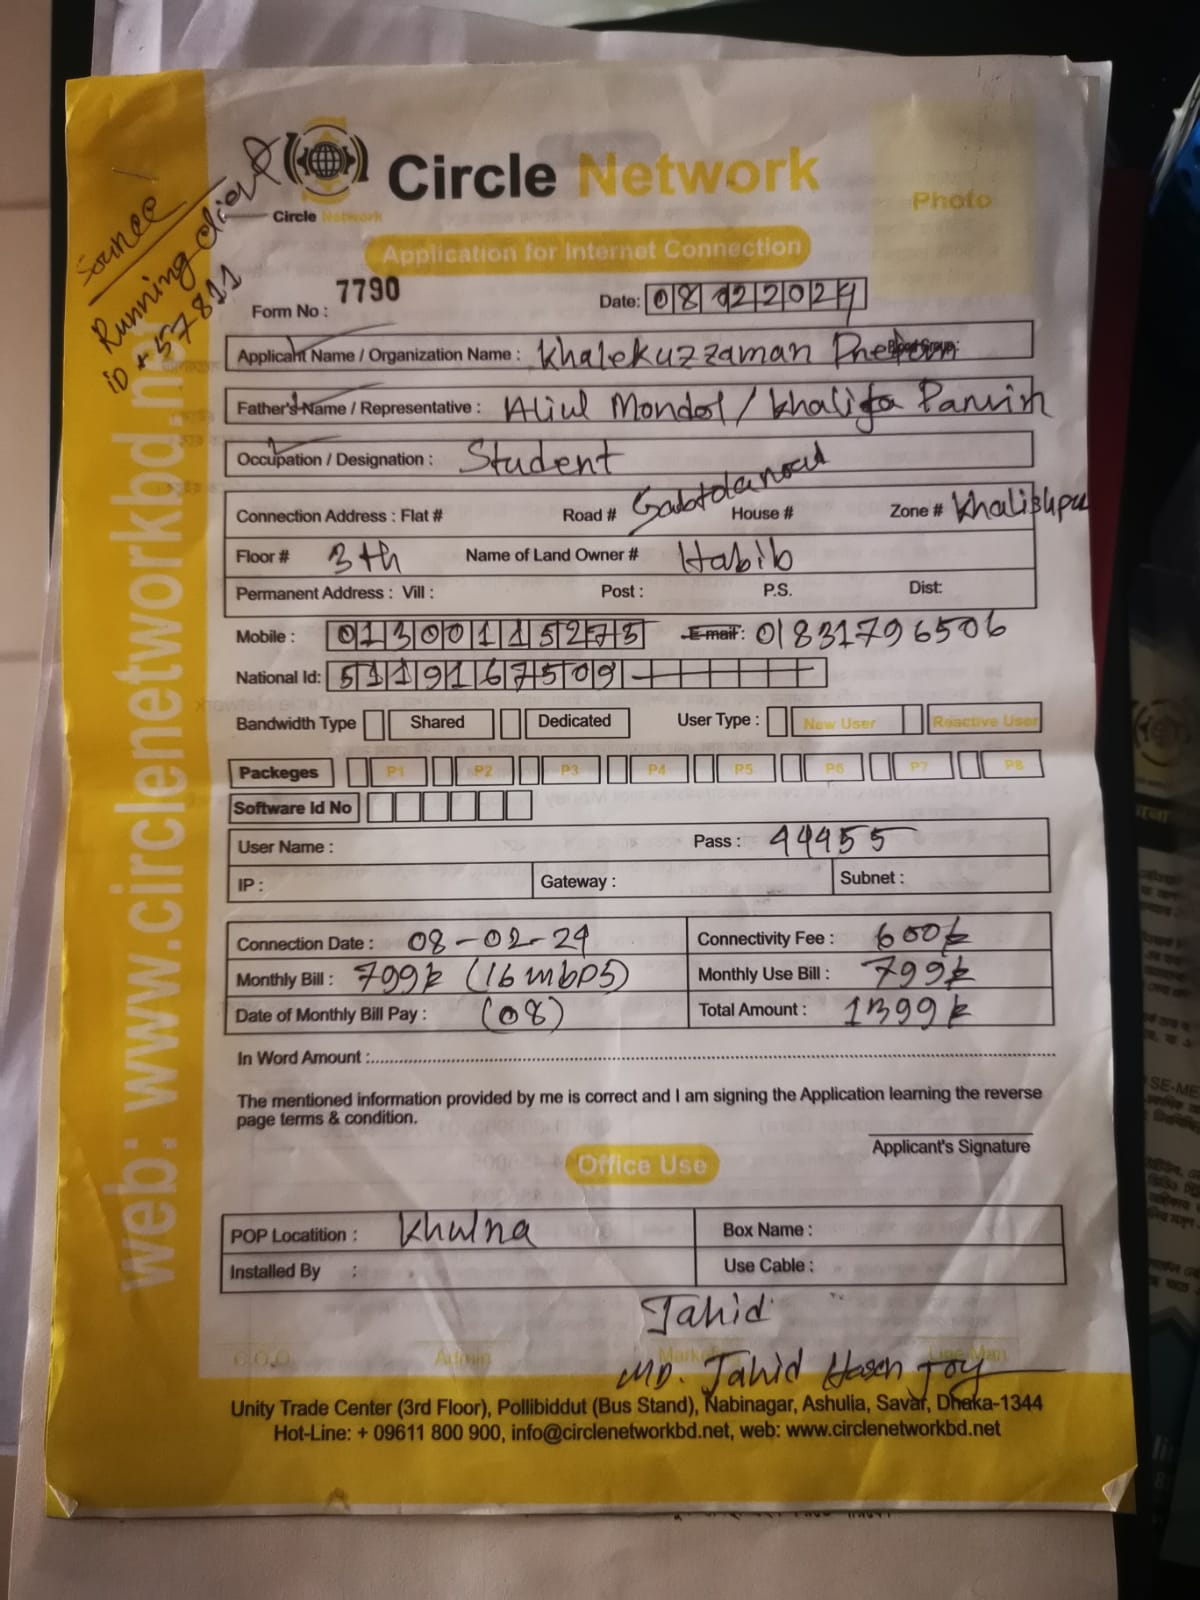 Source
Running client
ID + 57811
Circle Network
Circle Network
Photo
Application for Internet Connection
Form No : 7790
Date: 08 02 2024
Applicant Name / Organization Name : Khalekuzzaman
Father's Name / Representative : Aliul Mondol / Khalifa Parvin
Occupation / Designation : Student
Connection Address : Flat # Road # House # Zone #
Floor # 3th Name of Land Owner # Habib
Permanent Address : Vill : Post : P.S. Dist:
Mobile : 01300115275 E-mail : 01831796506
National Id: 5119167509
Bandwidth Type Shared Dedicated User Type : New User Reactive User
Packeges P1 P2 P3 P4 P5 P6 P7 P8
Software Id No
User Name : Pass : 44455
IP : Gateway : Subnet :
Connection Date : 08-02-24 Connectivity Fee : 600৳
Monthly Bill : 799৳ (16 mbps) Monthly Use Bill : 799৳
Date of Monthly Bill Pay : (08) Total Amount : 1399৳
In Word Amount :
The mentioned information provided by me is correct and I am signing the Application learning the reverse
page terms & condition.
Applicant's Signature
Office Use
POP Locatition : Khulna Box Name :
Installed By : Use Cable :
Jahid
C.O.O Admin
MD. Jahid Hasan Joy
Unity Trade Center (3rd Floor), Pollibiddut (Bus Stand), Nabinagar, Ashulia, Savar, Dhaka-1344
Hot-Line: + 09611 800 900, info@circlenetworkbd.net, web: www.circlenetworkbd.net
web: www.circlenetworkbd.net